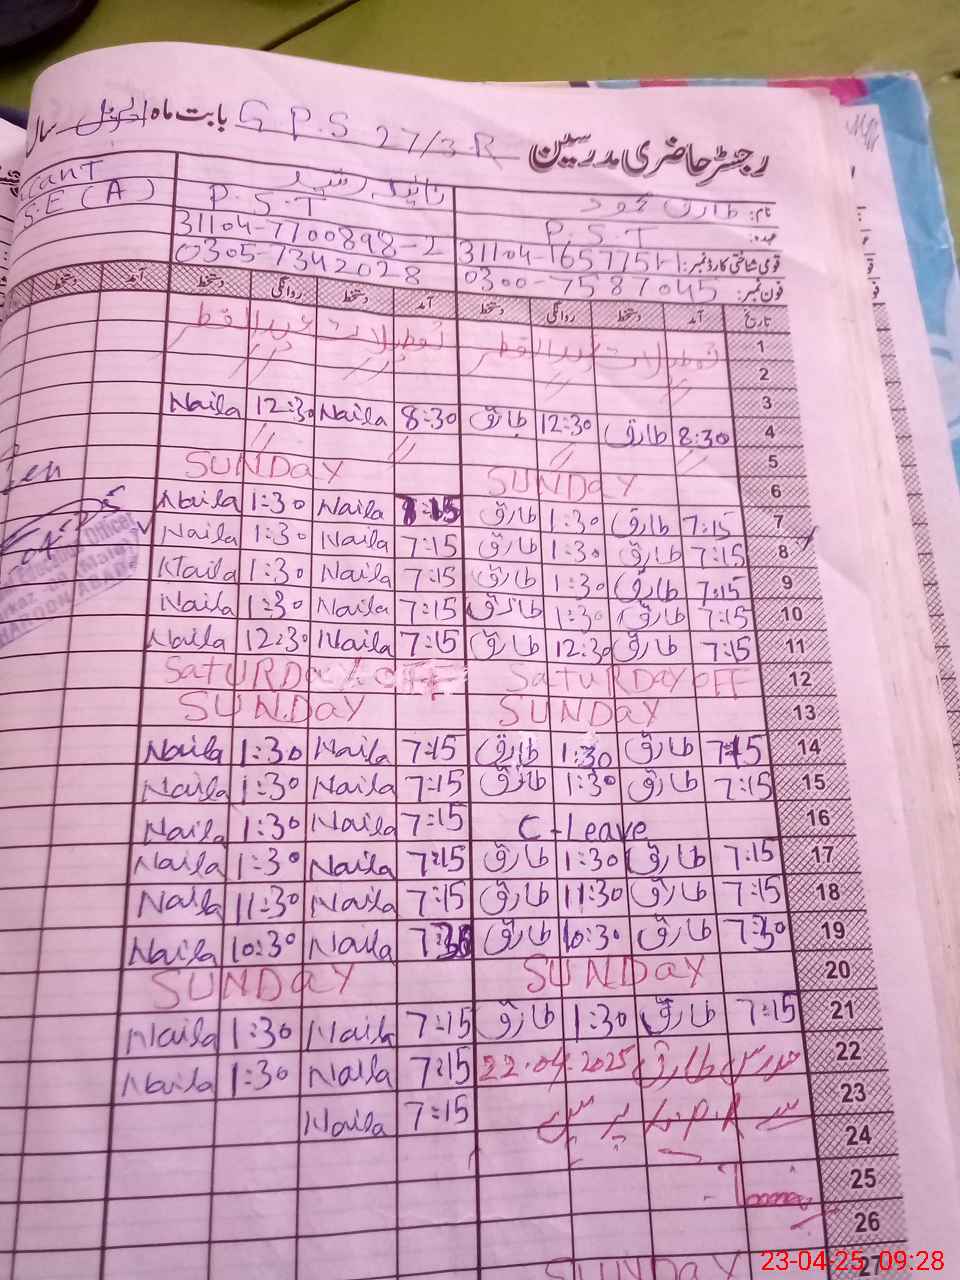 رجسٹر حاضری مدرسین G.P.S 27/3-R بابت ماہ اپریل سال
نام: طارق محمود
عہدہ: P.S.T P.S.T S.E(A)
قومی شناختی کارڈ نمبر: 31104-1657751-1 31104-7700898-2
فون نمبر: 0300-7587045 0305-7342028
تاریخ آمد دستخط روانگی دستخط آمد دستخط روانگی دستخط آمد دستخط
1 تعطیلات عید الفطر تعطیلات عید الفطر
2
3
4 8:30 طارق 12:30 طارق 8:30 Naila 12:30 Naila
5
6 SUNDAY SUNDAY
7 7:15 طارق 1:30 طارق 7:15 Naila 1:30 Naila
8 7:15 طارق 1:30 طارق 7:15 Naila 1:30 Naila
9 7:15 طارق 1:30 طارق 7:15 Naila 1:30 Naila
10 7:15 طارق 1:30 طارق 7:15 Naila 1:30 Naila
11 7:15 طارق 12:30 طارق 7:15 Naila 12:30 Naila
12 SATURDAY OFF SATURDAY OFF
13 SUNDAY SUNDAY
14 7:15 طارق 1:30 طارق 7:15 Naila 1:30 Naila
15 7:15 طارق 1:30 طارق 7:15 Naila 1:30 Naila
16 C-Leave 7:15 Naila 1:30 Naila
17 7:15 طارق 1:30 طارق 7:15 Naila 1:30 Naila
18 7:15 طارق 11:30 طارق 7:15 Naila 11:30 Naila
19 7:30 طارق 10:30 طارق 7:30 Naila 10:30 Naila
20 SUNDAY SUNDAY
21 7:15 طارق 1:30 طارق 7:15 Naila 1:30 Naila
22 مدرس طارق 22.04.2025 7:15 Naila 1:30 Naila
23 7:15 Naila
24
25
26
27 SUNDAY
23-04-25 09:28